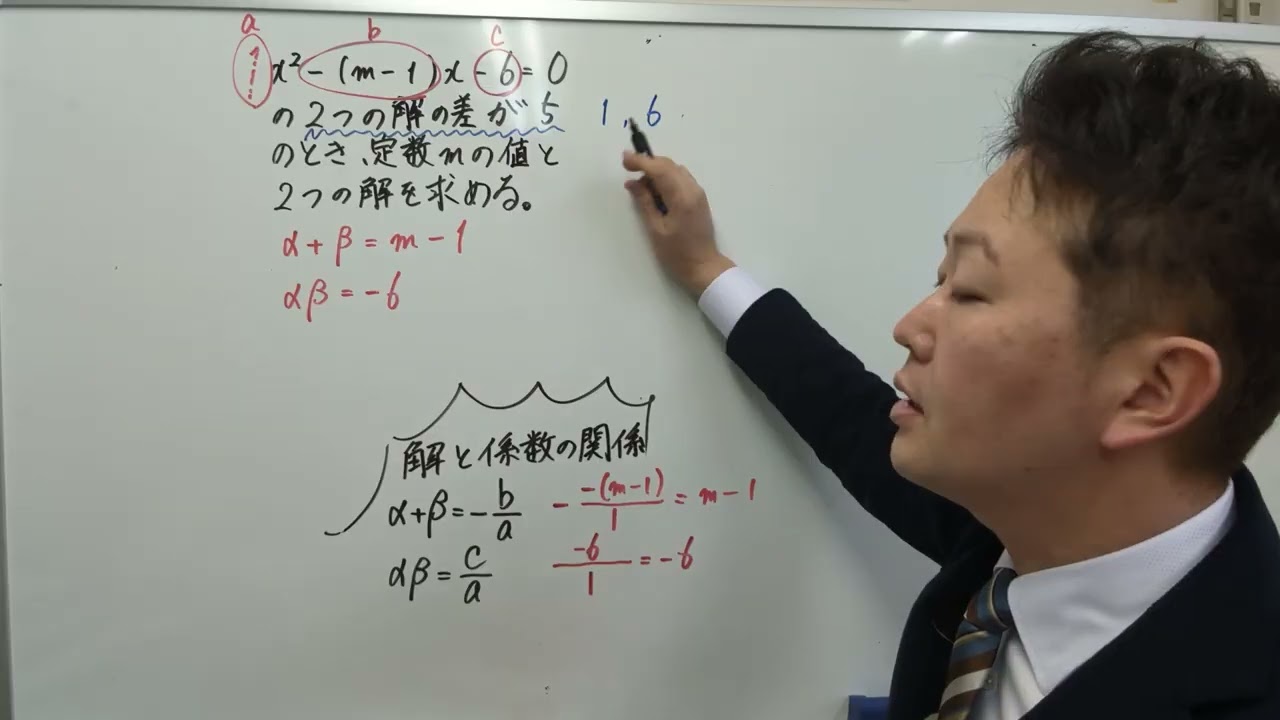 a b c
1x²-(m-1)x-6=0
の2つの解の差が5 1, 6
のとき、定数mの値と
2つの解を求める。
α+β=m-1
αβ=-6
解と係数の関係
α+β=-b/a -(-(m-1))/1=m-1
αβ=c/a -6/1=-6